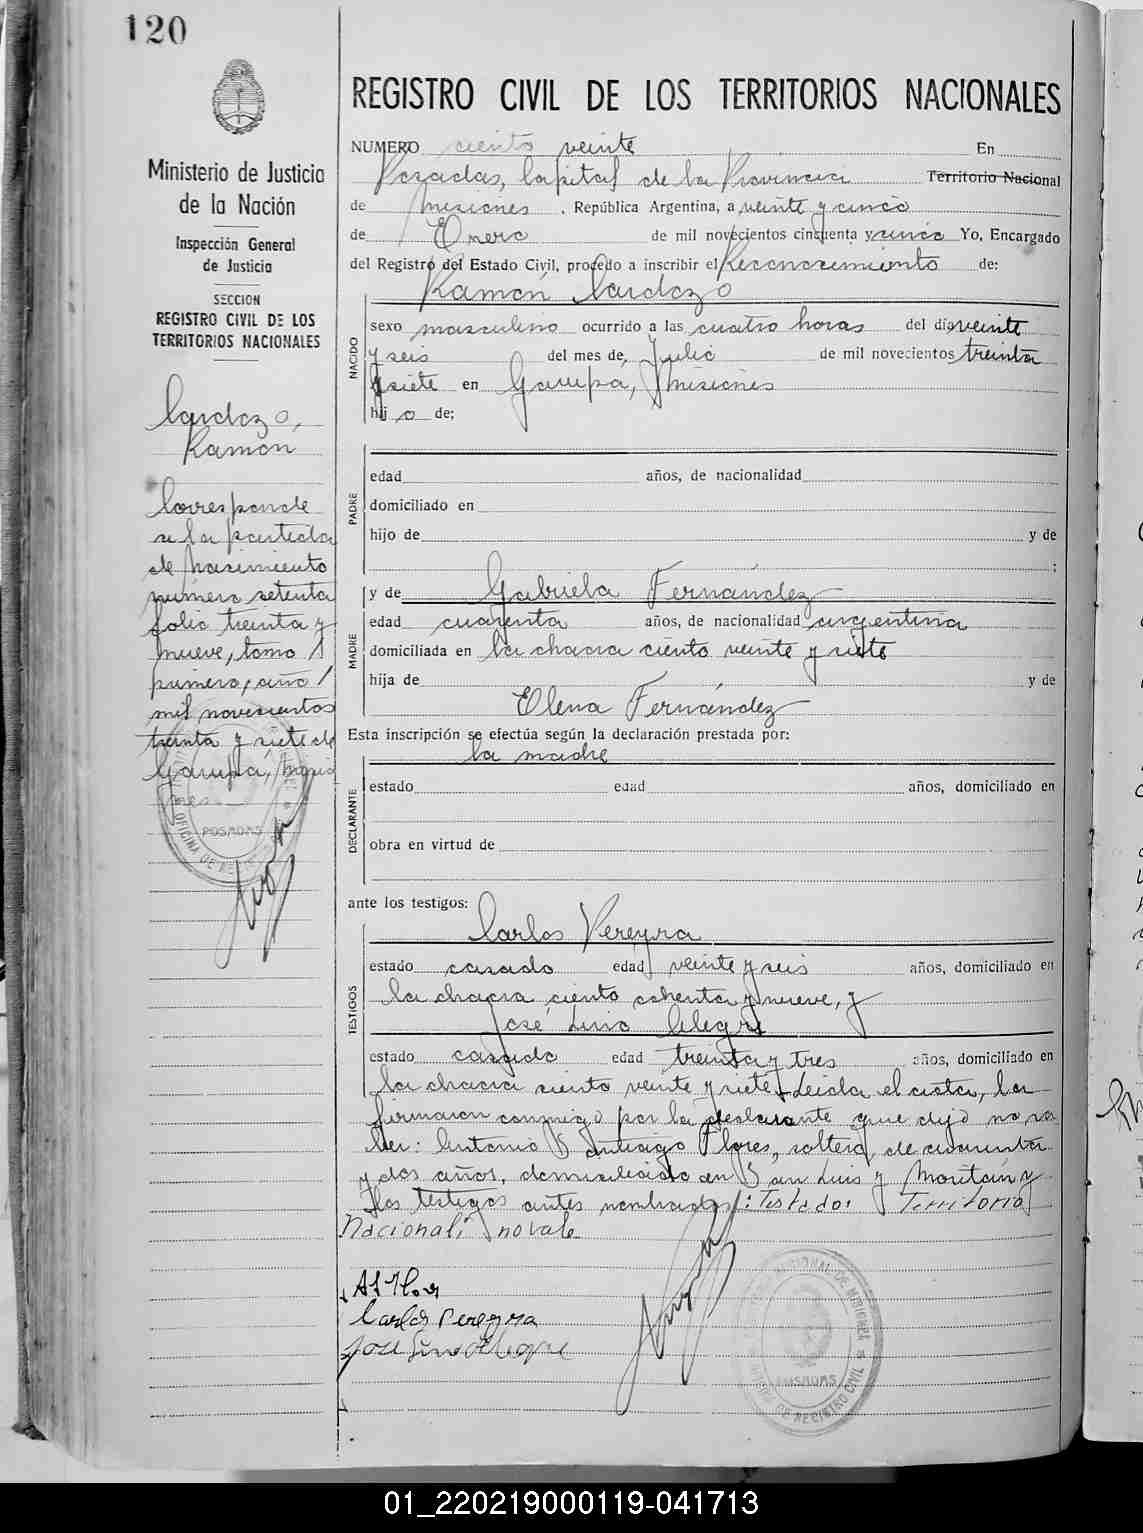 120
Ministerio de Justicia
de la Nación
Inspección General
de Justicia
SECCION
REGISTRO CIVIL DE LOS
TERRITORIOS NACIONALES
Cardozo,
Ramón
Corresponde
a la partida
de nacimiento
número setenta
folio treinta y
nueve, tomo
primero, año
mil novecientos
treinta y siete de
Garupá, Misio
nes
POSADAS
REGISTRO CIVIL DE LOS TERRITORIOS NACIONALES
NUMERO ciento veinte En
Posadas, Capital de la Provincia Territorio Nacional
de Misiones, República Argentina, a veinte y cinco
de Enero de mil novecientos cincuenta y cinco Yo, Encargado
del Registro del Estado Civil, procedo a inscribir el Reconocimiento de:
Ramón Cardozo
NACIDO
sexo masculino ocurrido a las cuatro horas del día veinte
y seis del mes de Julio de mil novecientos treinta
y siete en Garupá, Misiones
hijo de;
PADRE
edad años, de nacionalidad
domiciliado en
hijo de y de
;
MADRE
y de Gabriela Fernández
edad cuarenta años, de nacionalidad argentina
domiciliada en la chacra ciento veinte y siete
hija de y de
Elena Fernández
Esta inscripción se efectúa según la declaración prestada por:
la madre
DECLARANTE
estado edad años, domiciliado en
obra en virtud de
ante los testigos:
TESTIGOS
Carlos Pereyra
estado casado edad veinte y seis años, domiciliado en
la chacra ciento ochenta y nueve, y
José Luis Alegre
estado casado edad treinta y tres años, domiciliado en
la chacra ciento veinte y siete. Leida el acta, la
firmaron conmigo por la declarante que dijo no sa
ber: Antonio Santiago Flores, soltero, de cuarenta
y dos años, domiciliado en San Luis y Moritán y
los testigos antes nombrados: Testado: Territorio
Nacional: no vale
Carlos Pereyra
POSADAS
01_220219000119-041713